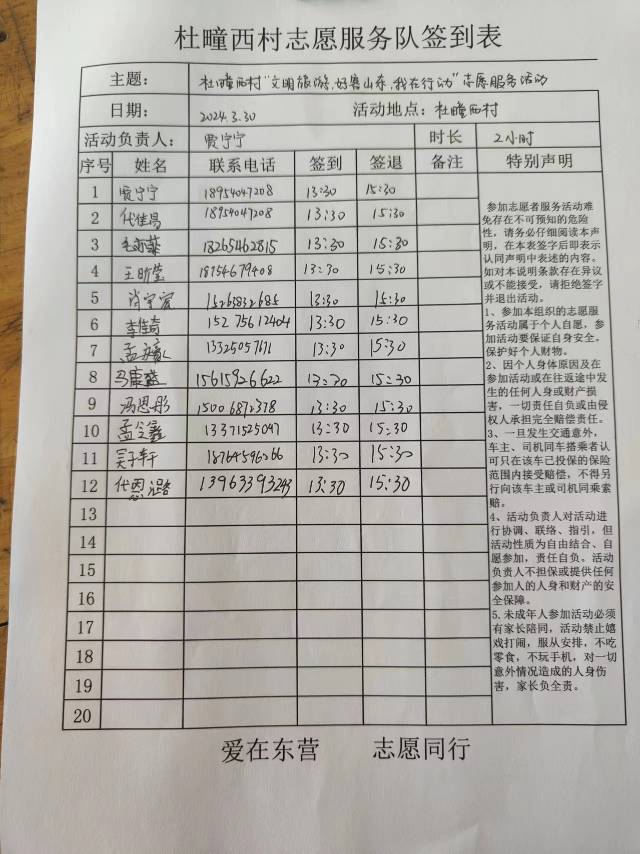 杜疃西村志愿服务队签到表
主题： 杜疃西村“文明旅游，好客山东，我在行动”志愿服务活动
日期： 2024.3.30 活动地点：杜疃西村
活动负责人： 贾宁宁 时长 2小时
序号 姓名 联系电话 签到 签退 备注 特别声明
1 贾宁宁 18954047208 13:30 15:30
2 代佳昌 18954047208 13:30 15:30
3 18265462815 13:30 15:30
4 王昕莹 18754679408 13:30 15:30
5 肖宇宸 15265832685 13:30 15:30
6 李佳奇 15275612404 13:30 15:30
7 13325057671 13:30 15:30
8 马康盛 15615926622 13:30 15:30
9 冯恩彤 15006892378 13:30 15:30
10 13371525047 13:30 15:30
11 吴子轩 18764596266 13:30 15:30
12 代恩璐 13963393243 13:30 15:30
13
14
15
16
17
18
19
20
参加志愿者服务活动难
免存在不可预知的危险
性，请务必仔细阅读本声
明，在本表签字后即表示
认同声明中表述的内容。
如对本说明条款存在异议
或不能接受，请拒绝签字
并退出活动。
1、参加本组织的志愿服
务活动属于个人自愿，参
加活动要保证自身安全，
保护好个人财物。
2、因个人身体原因及在
参加活动或在往返途中发
生的任何人身或财产损
害，一切责任自负或由侵
权人承担完全赔偿责任。
3、一旦发生交通意外，
车主、司机同车搭乘者认
可只在该车已投保的保险
范围内接受赔偿，不得另
行向该车主或司机同乘索
赔。
4、活动负责人对活动进
行协调、联络、指引，但
活动性质为自由结合、自
愿参加，责任自负。活动
负责人不担保或提供任何
参加人的人身和财产的安
全保障。
5.未成年人参加活动必须
有家长陪同，活动禁止嬉
戏打闹，服从安排，不吃
零食，不玩手机，对一切
意外情况造成的人身伤
害，家长负全责。
爱在东营 志愿同行